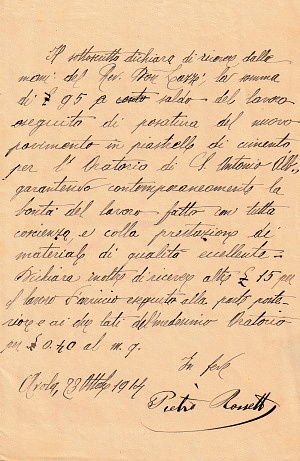 Il sottoscritto dichiara di ricevere dalle
mani del Rev. Don Cozzi, la somma
di £ 95 a conto saldo del lavoro
eseguito di posatura del nuovo
pavimento in piastrelle di cimento,
per l'Oratorio di S. Antonio
garantendo contemporaneamente la
bontà del lavoro fatto con tutta
coscienza e colla prestazione di
materiale di qualità eccellente.
Dichiara inoltre di ricevere altre £ 15 per
il lavoro eseguito alla parte poste-
riore e ai due lati del medesimo Oratorio
per £ 0.40 al m. q.
In fede
23 Ottobre 1914
Pietro Rossetti